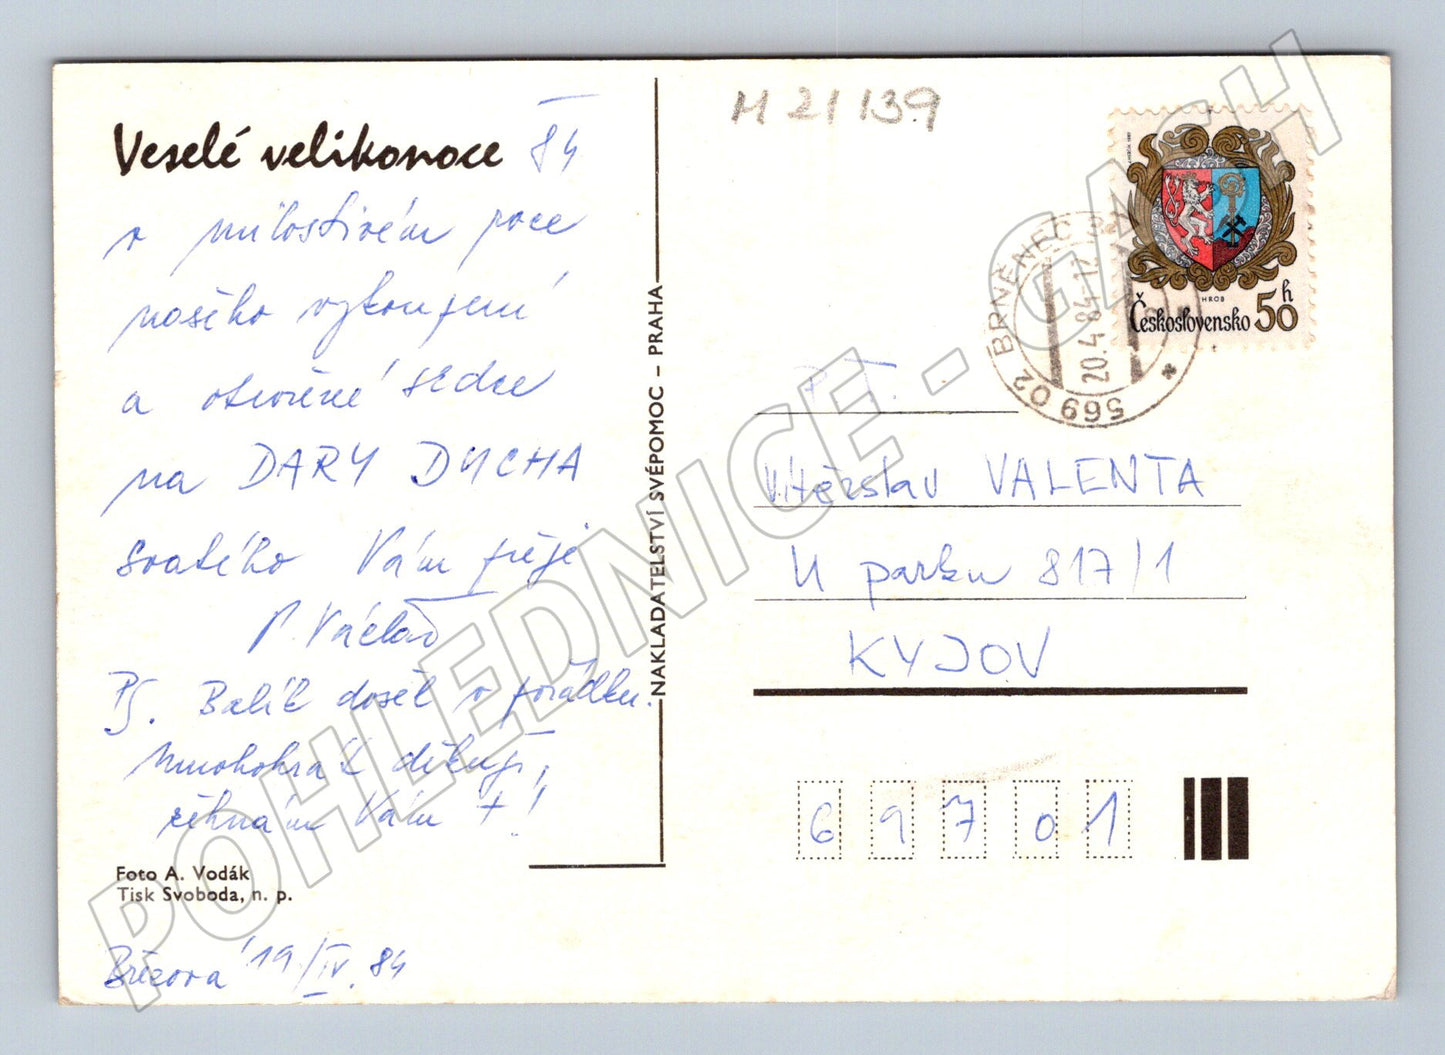 Veselé velikonoce 84
v milostivém roce
našeho vykoupení
a otevřené srdce
na DARY DUCHA
svatého Vám přeje
P. Václav
PS. Balík došel v pořádku.
Mnohokrát děkuji,
žehnám Vám †!
Foto A. Vodák
Tisk Svoboda, n. p.
Březová 19/IV. 84
NAKLADATELSTVÍ SVÉPOMOC – PRAHA
M 21 139
HROB
Československo 50 h
569 02 BRNĚNEC
20.4.84-12
P.T.
Vítězslav VALENTA
U parku 817/1
KYJOV
697 01
POHLEDNICE - GASH